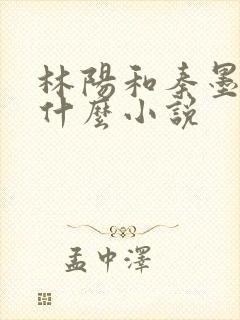 林陽和秦墨
什麼小說
孟中澤